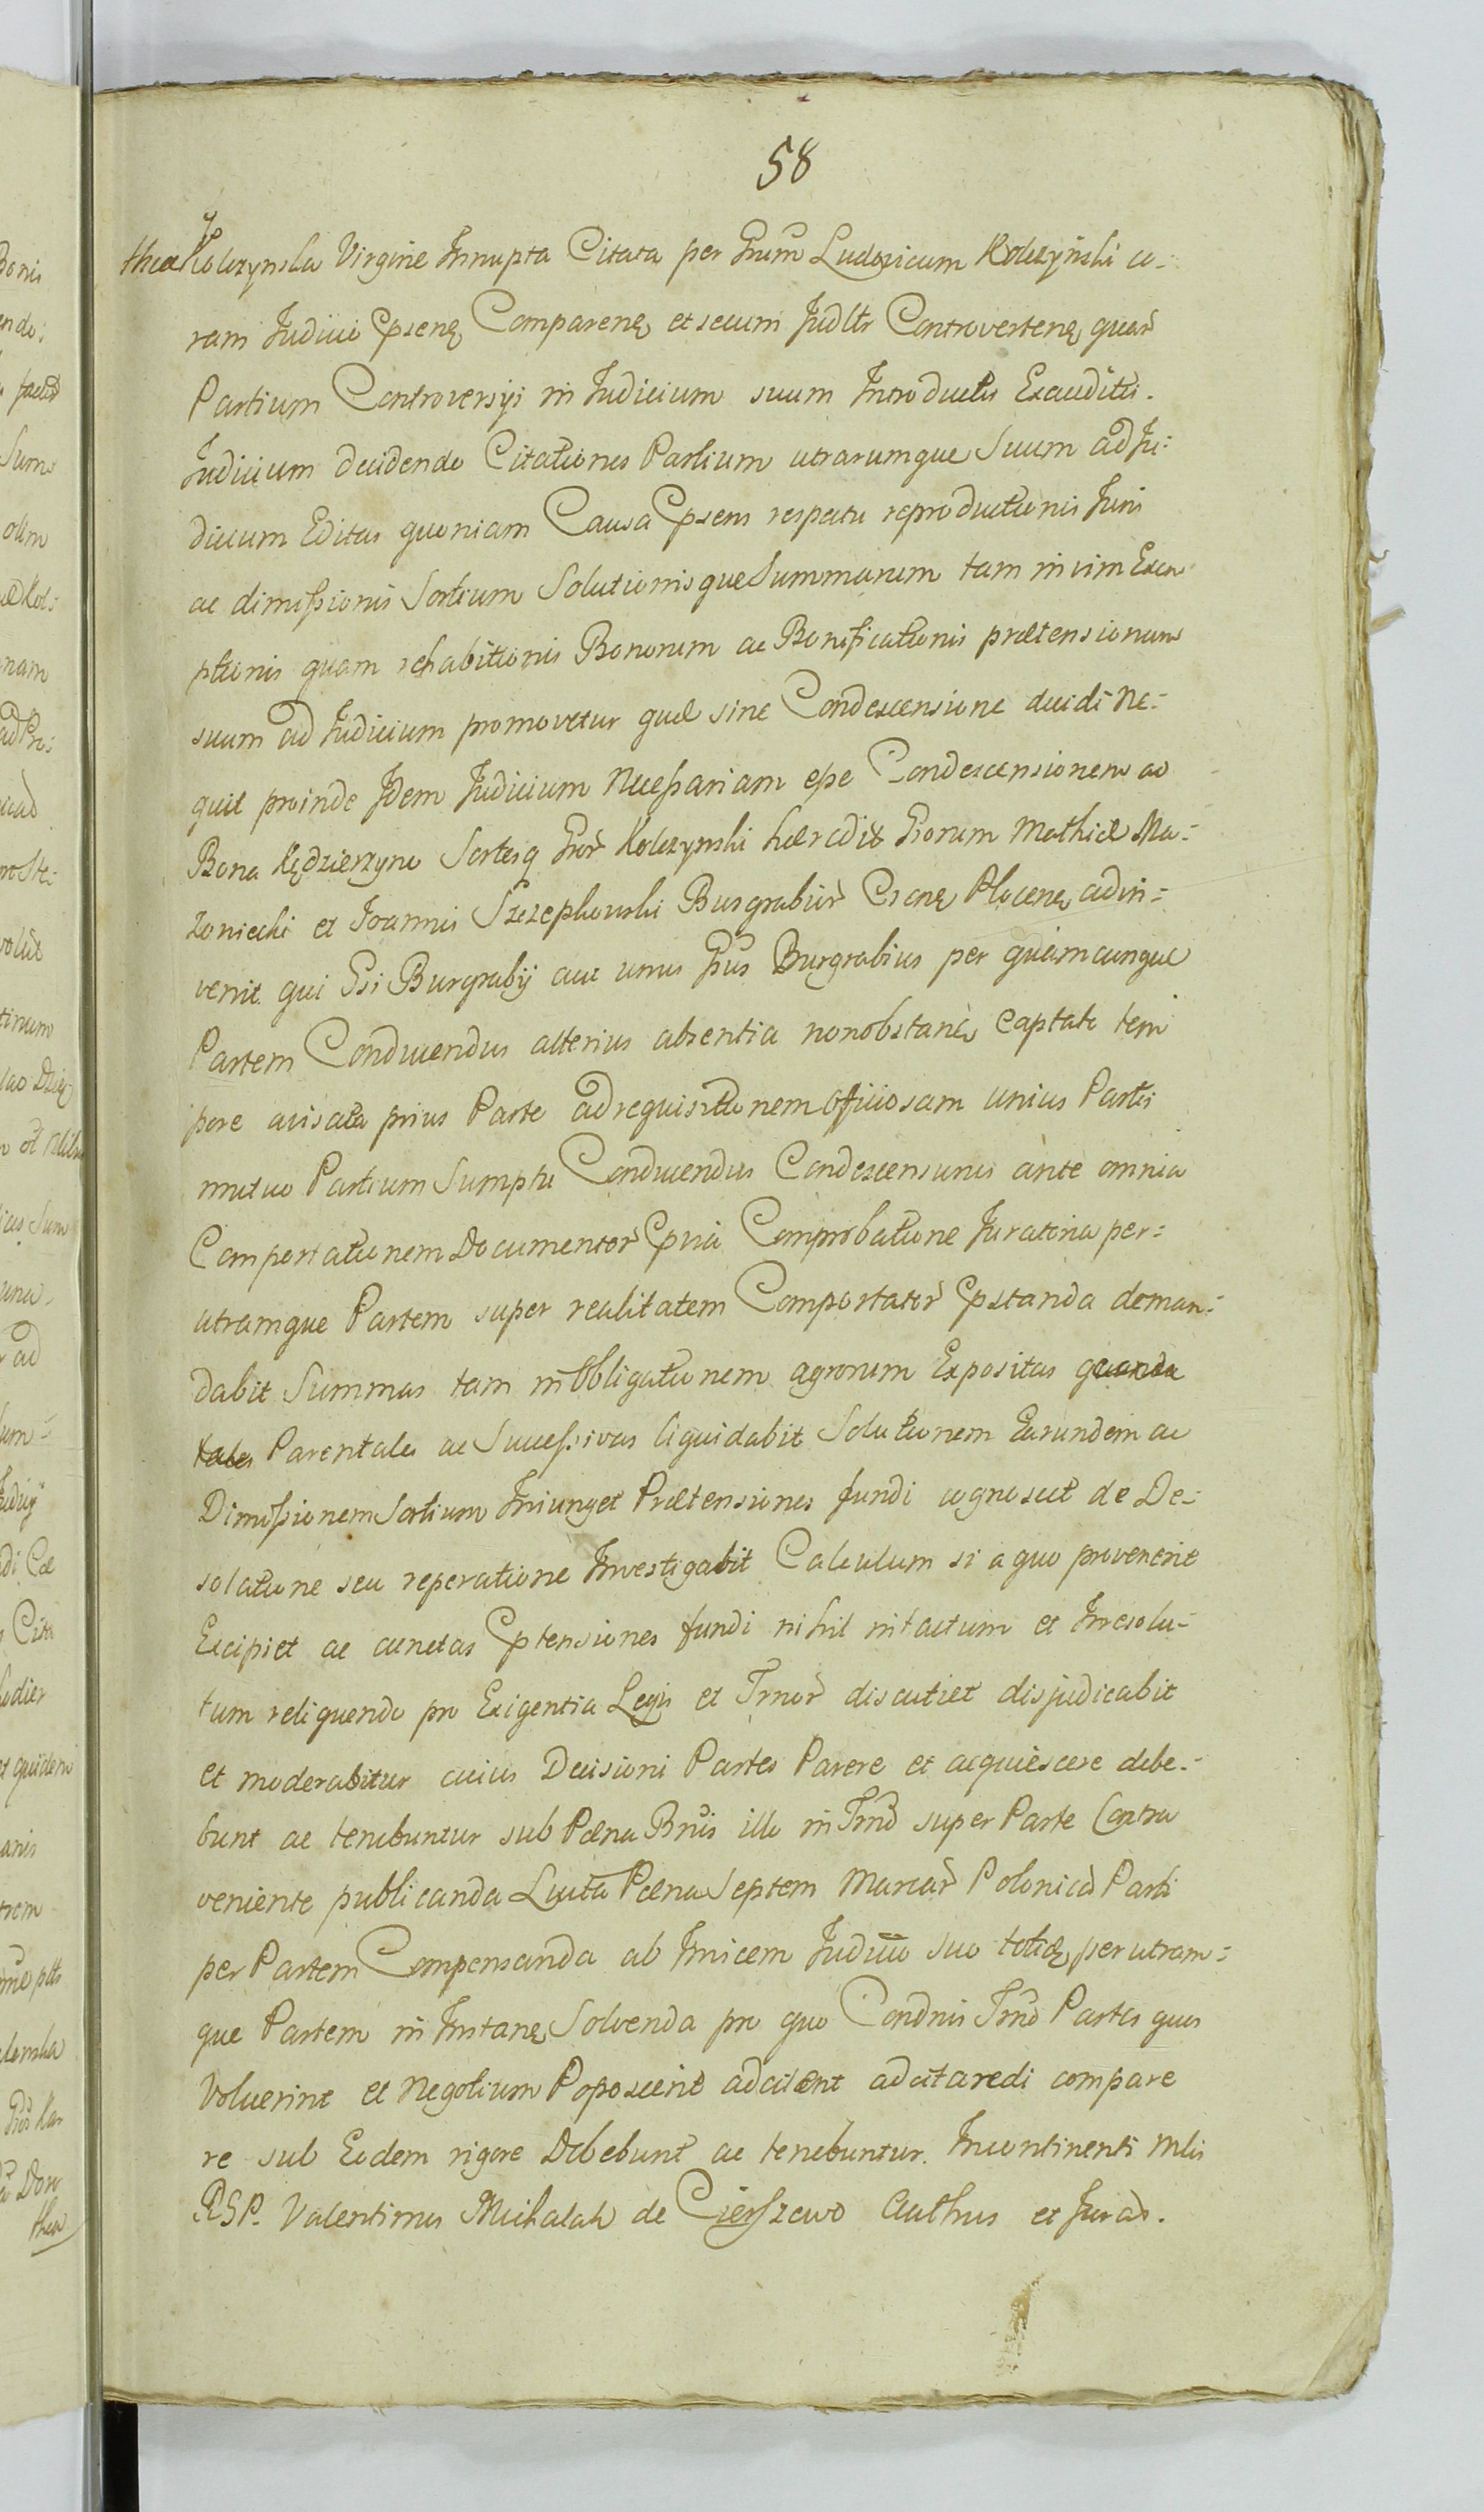 58
thea Kolczynska Virgine Innupta Citata per Grum Ludovicum Kolczynski co-
ram Judicio Cpsenę Comparenę et secum Judltr Controvertenę quar
Partium Controversijs in Judicium suum Introductis Exauditis.
Judicium decidendo Citationes Partium utrarumque Suum ad Ju-
dicium Editas quoniam Causa Cpsens respectu reproductionis Juris
ac dimissionis Sortium Solutionisque Summarum tam in vim Exem
ptionis quam rehabitionis Bonorum ac Bonificationis prætensionum
suum ad Judicium promovetur quæ sine Condescensione decidi ne-
quit proinde Idem Judicium Necessariam esse Condescensionem ad
Bona Kędzierzyno Sortesq Gror Kolczynski hæredit Grorum Mathiæ Ma-
zoniecki et Joannis Szczepkowski Burgrabior Csenę Plocenę adin-
venit qui Gsi Burgrabij aut unus Grus Burgrabius per quamcunque
Partem Conducendus alterius absentia nonobstane captato tem
pore avisata prius Parte ad requisitionem officiosam unius Partis
mutuo Partium Sumptu Conducendus Condescensurus ante omnia
Comportationem Documentor Cpvia Comprobatione Juratoria per-
utramque Partem super realitatem Comportator Cpstanda deman-
dabit Summas tam in Obligationem agrorum Expositas
Parentales ac Successivas liquidabit Solutionem Earundem ac
Dimissionem Sortium Iniunget Prætensiones fundi cognoscet de De-
solatione seu reperatione Investigabit Calculum si a quo provenerit
Excipiet ac cunctas Cptensiones fundi nihil intactum et Irresolu-
tum reliquendo pro Exigentia Legis et Trnor discutiet disjudicabit
et moderabitur cuius Decisioni Partes Parere et acquiescere debe-
bunt ac tenebuntur sub Pæna Bnis illo in Trnô super Parte Contra
veniente publicanda Luita Pæna Septem Marcar Polonica Parti
per Partem Compensanda ab Invicem Judicio suo totidę per utram-
que Partem in Instanę Solvenda pro quo Condnis Trnô Partes quos
Voluerint et Negotium Poposcerit adcitent adcitaredi compare
re sub Eodem rigore Debebunt ac tenebuntur. Incontinenti Mlis
RSP. Valentinus Michalak de Cierszewo Authus et Jurad.